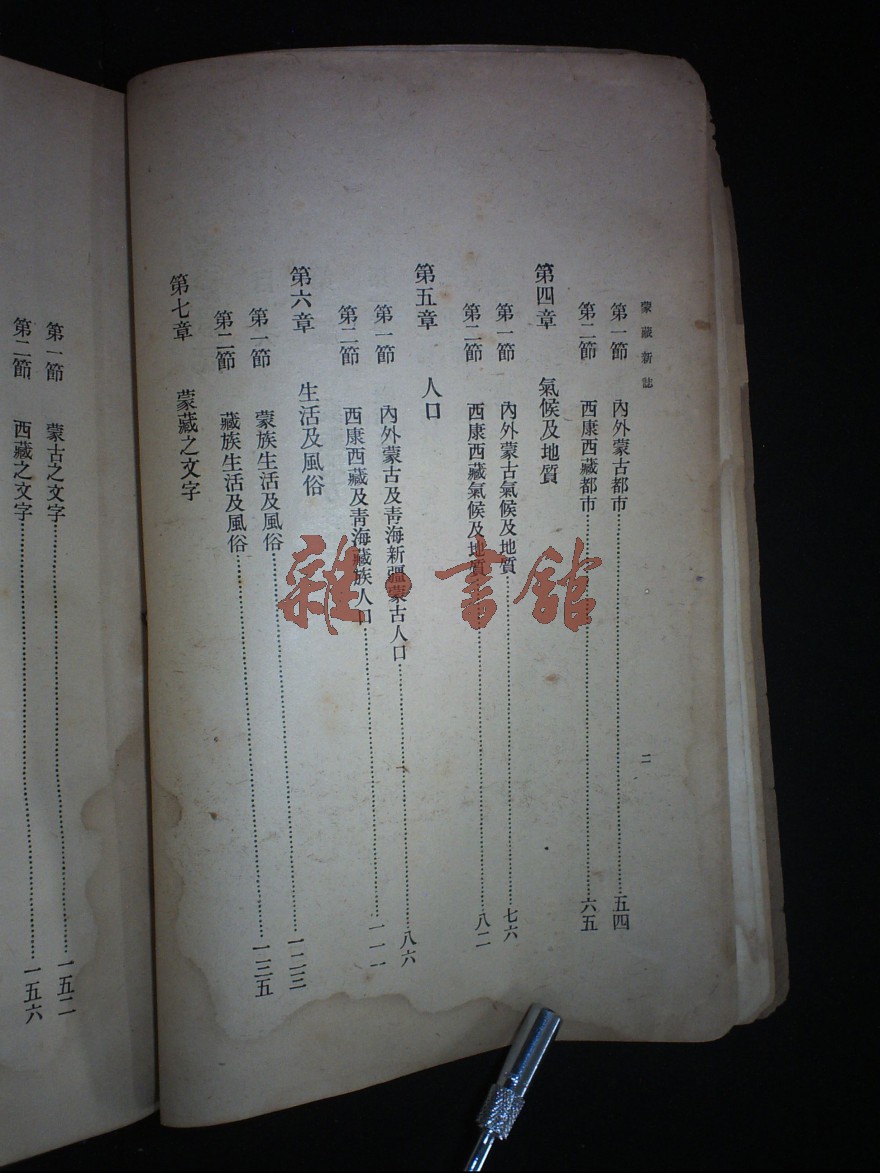 蒙藏新誌
二
第一節 內外蒙古都市……五四
第二節 西康西藏都市……六五
第四章 氣候及地質
第一節 內外蒙古氣候及地質……七六
第二節 西康西藏氣候及地質……八二
第五章 人口
第一節 內外蒙古及青海新疆蒙古人口……八六
第二節 西康西藏及青海藏族人口……一一一
第六章 生活及風俗
第一節 蒙族生活及風俗……一二三
第二節 藏族生活及風俗……一三五
第七章 蒙藏之文字
第一節 蒙古之文字……一五二
第二節 西藏之文字……一五六
雜·書館